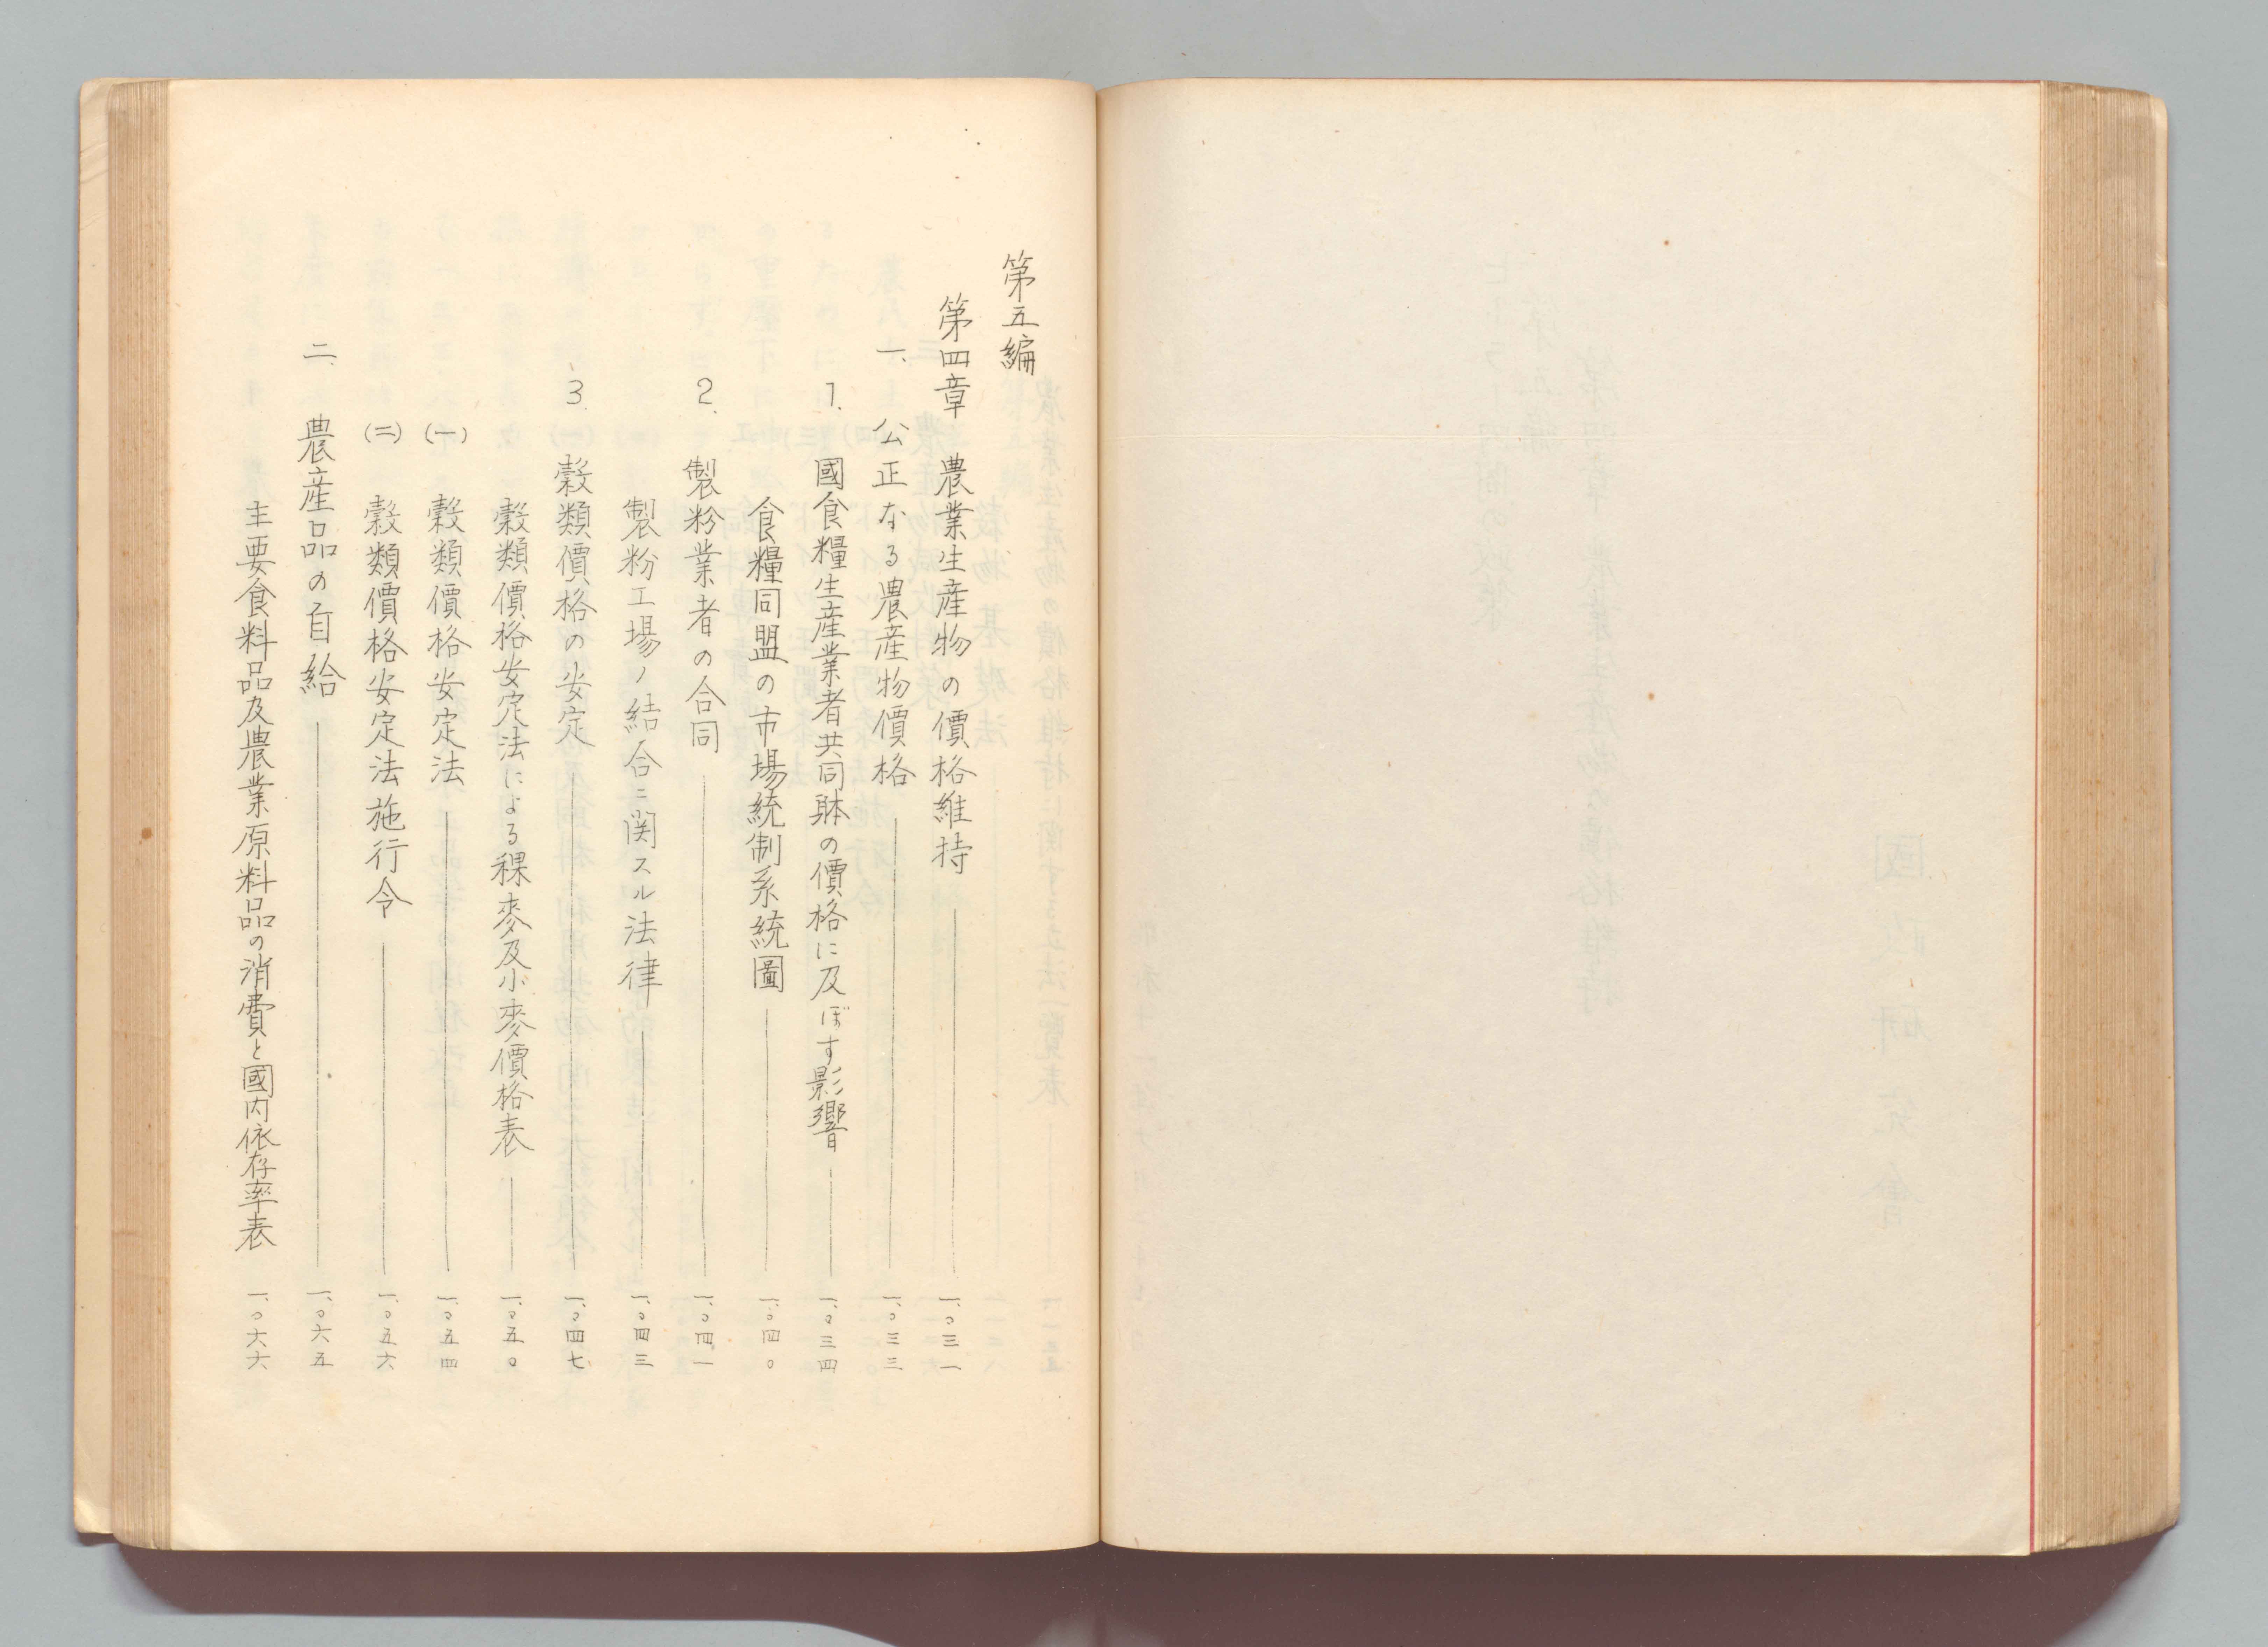 第五編
第四章 農業生産物の價格維持 一、〇三一
一、公正なる農産物價格 一、〇三三
1. 國食糧生産業者共同躰の價格に及ぼす影響 一、〇三四
食糧同盟の市場統制系統圖 一、〇四〇
2. 製粉業者の合同 一、〇四一
製粉工場ノ結合ニ関スル法律 一、〇四三
3. 穀類價格の安定 一、〇四七
穀類價格安定法による稞麥及小麥價格表 一、〇五〇
(一) 穀類價格安定法 一、〇五四
(二) 穀類價格安定法施行令 一、〇五六
二、農産品の自給 一、〇六五
主要食料品及農業原料品の消費と國内依存率表 一、〇六六